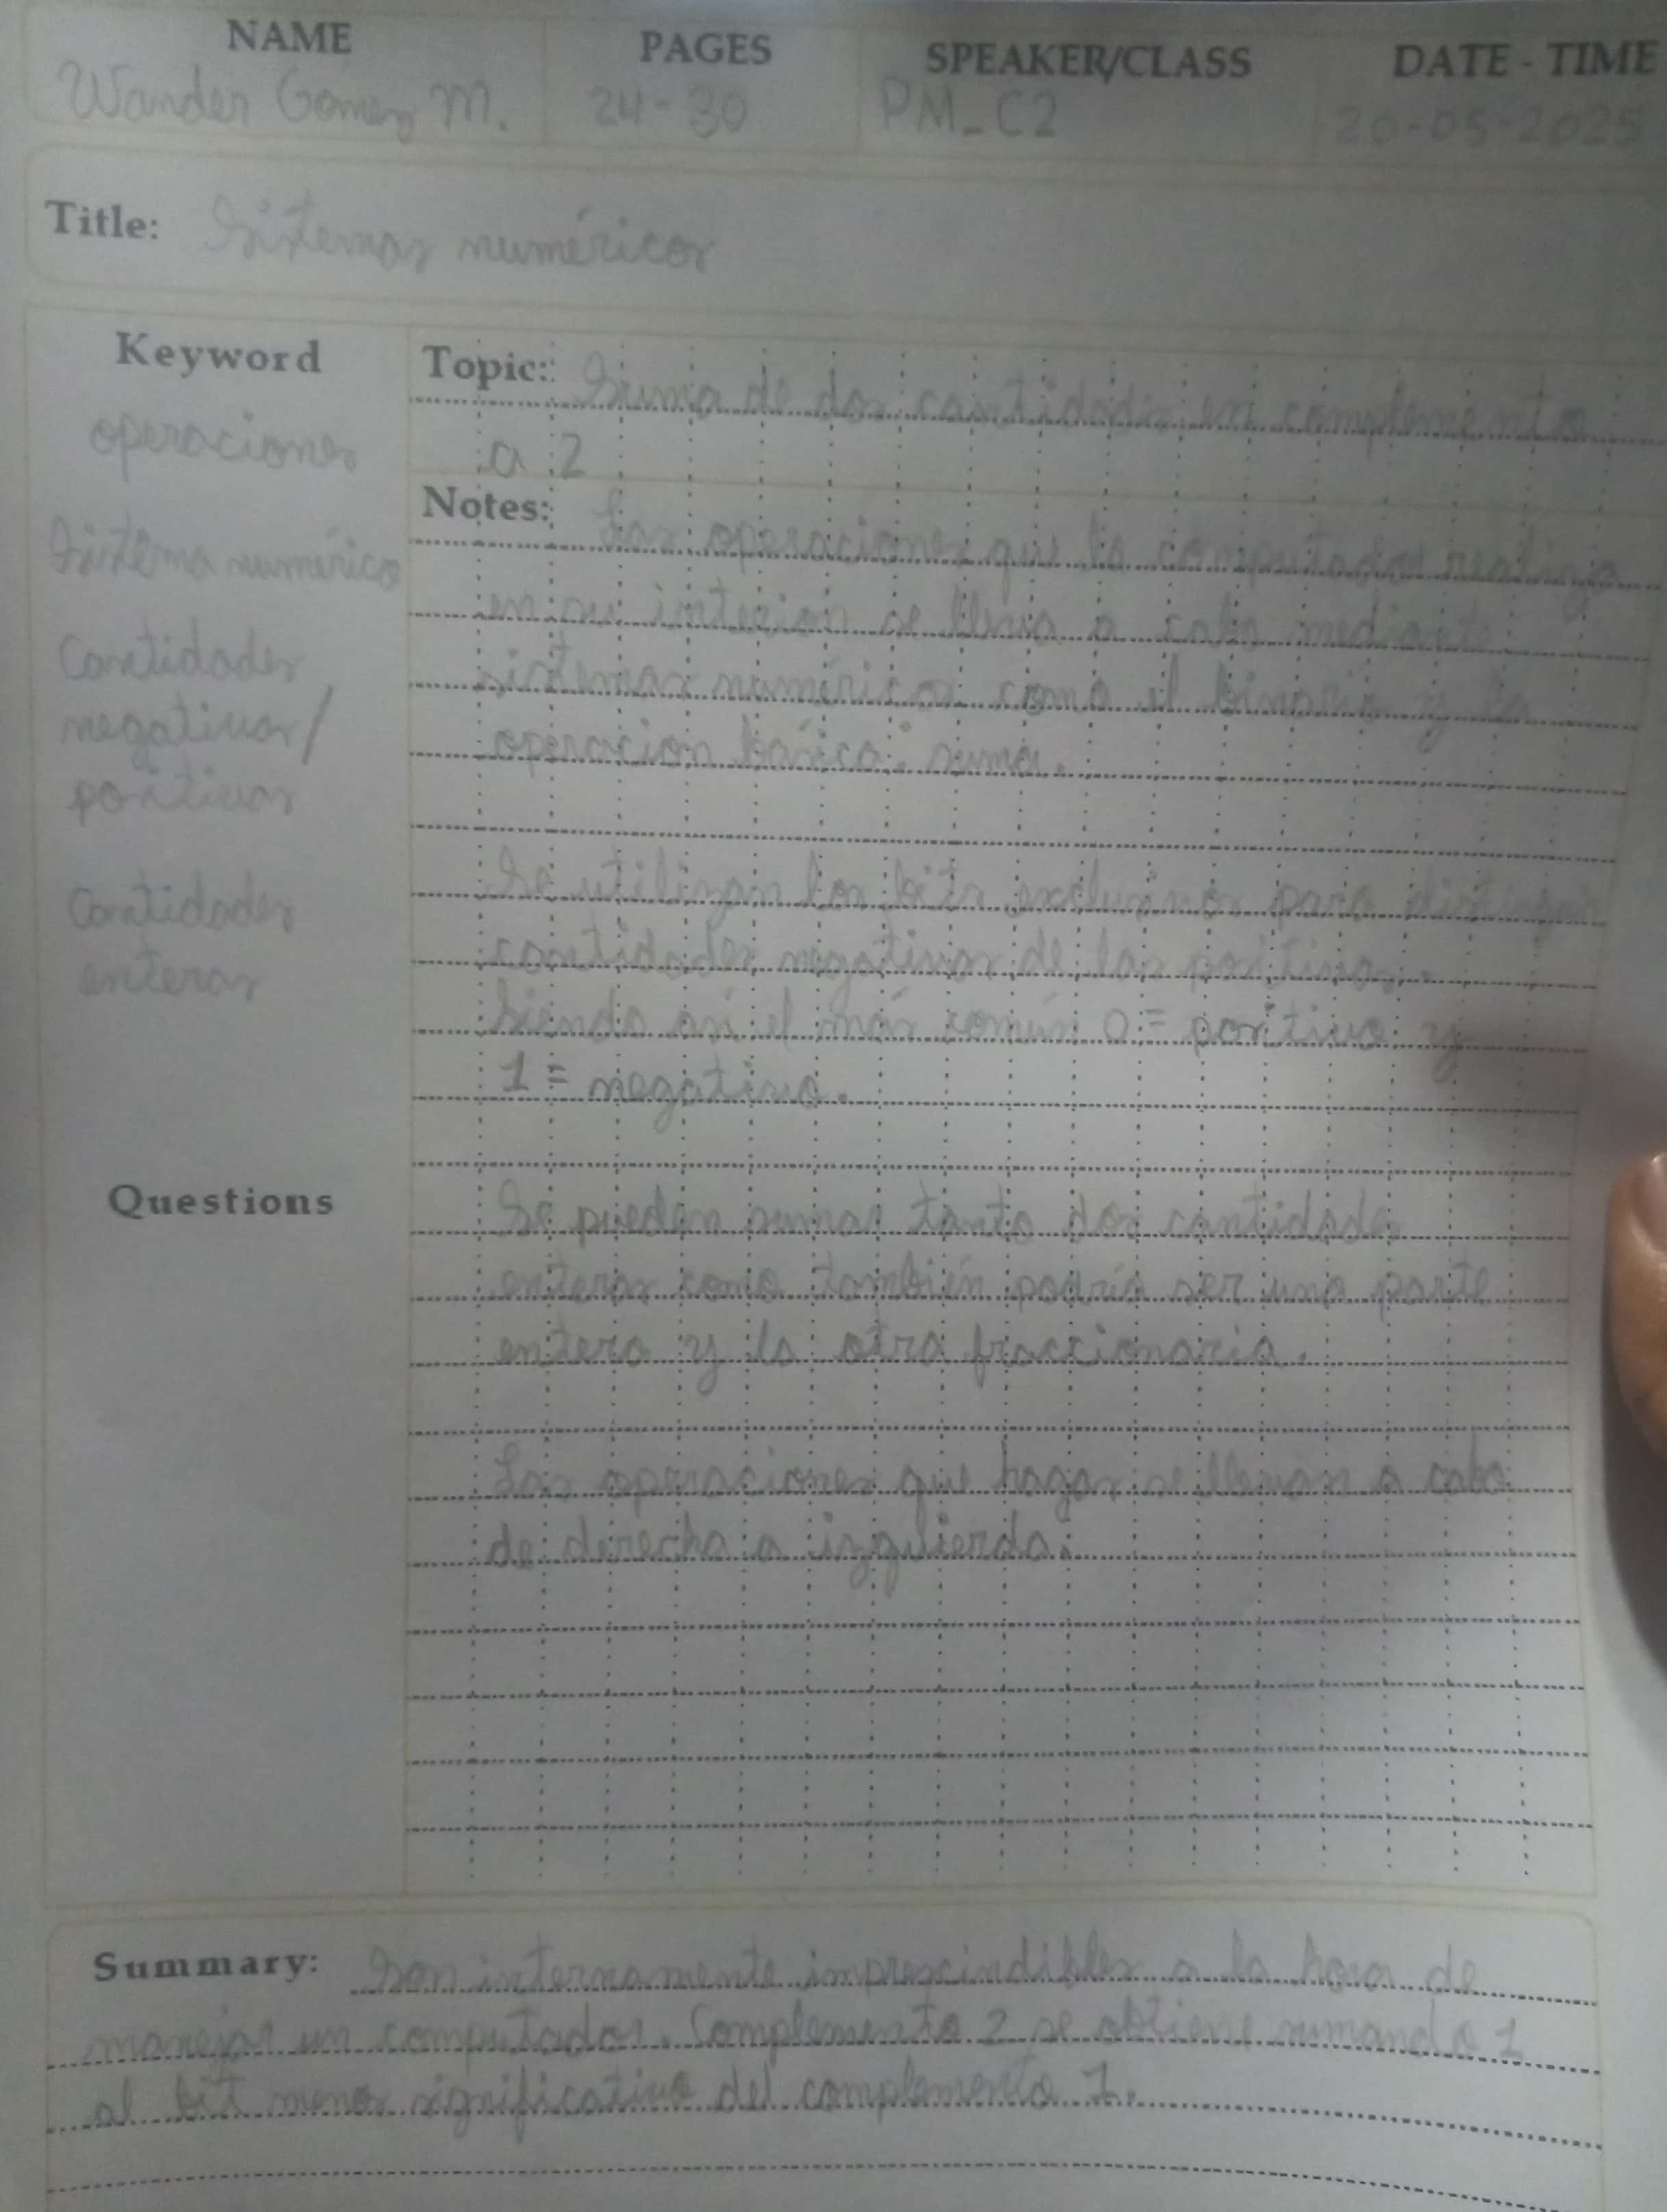 NAME PAGES SPEAKER/CLASS DATE - TIME
Wander Gomez M. 24-30 PM_C2 20-05-2025
Title: Sistemas numéricos
Keyword
operaciones
Sistema numérico
Cantidades
negativas/
positivas
Cantidades
enteras
Questions
Topic: Suma de dos cantidades en complemento
a 2
Notes: Las operaciones que la computadora realiza
en su interior se lleva a cabo mediante
sistemas numéricos como el binario y la
operación básica: suma.
Se utilizan los bits exclusivos para distinguir
cantidades negativas de las positivas.
Siendo así el más común 0 = positivo y
1 = negativo.
Se pueden sumar tanto dos cantidades
enteras como también podría ser una parte
entera y la otra fraccionaria.
Las operaciones que hagas se llevan a cabo
de derecha a izquierda.
Summary: Son internamente imprescindibles a la hora de
manejar un computador. Complemento 2 se obtiene sumando 1
al bit menos significativo del complemento 1.